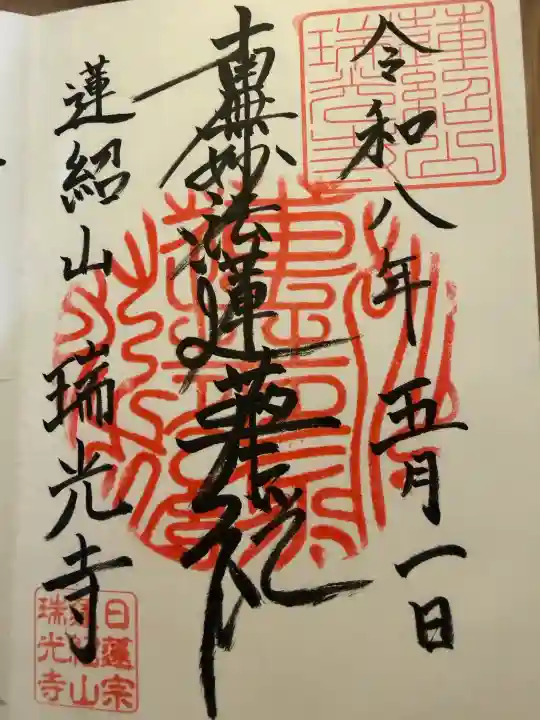 令和八年 五月一日
南無妙法蓮華経
蓮紹山 瑞光寺
蓮紹山
瑞光寺
日蓮宗
蓮紹山
瑞光寺